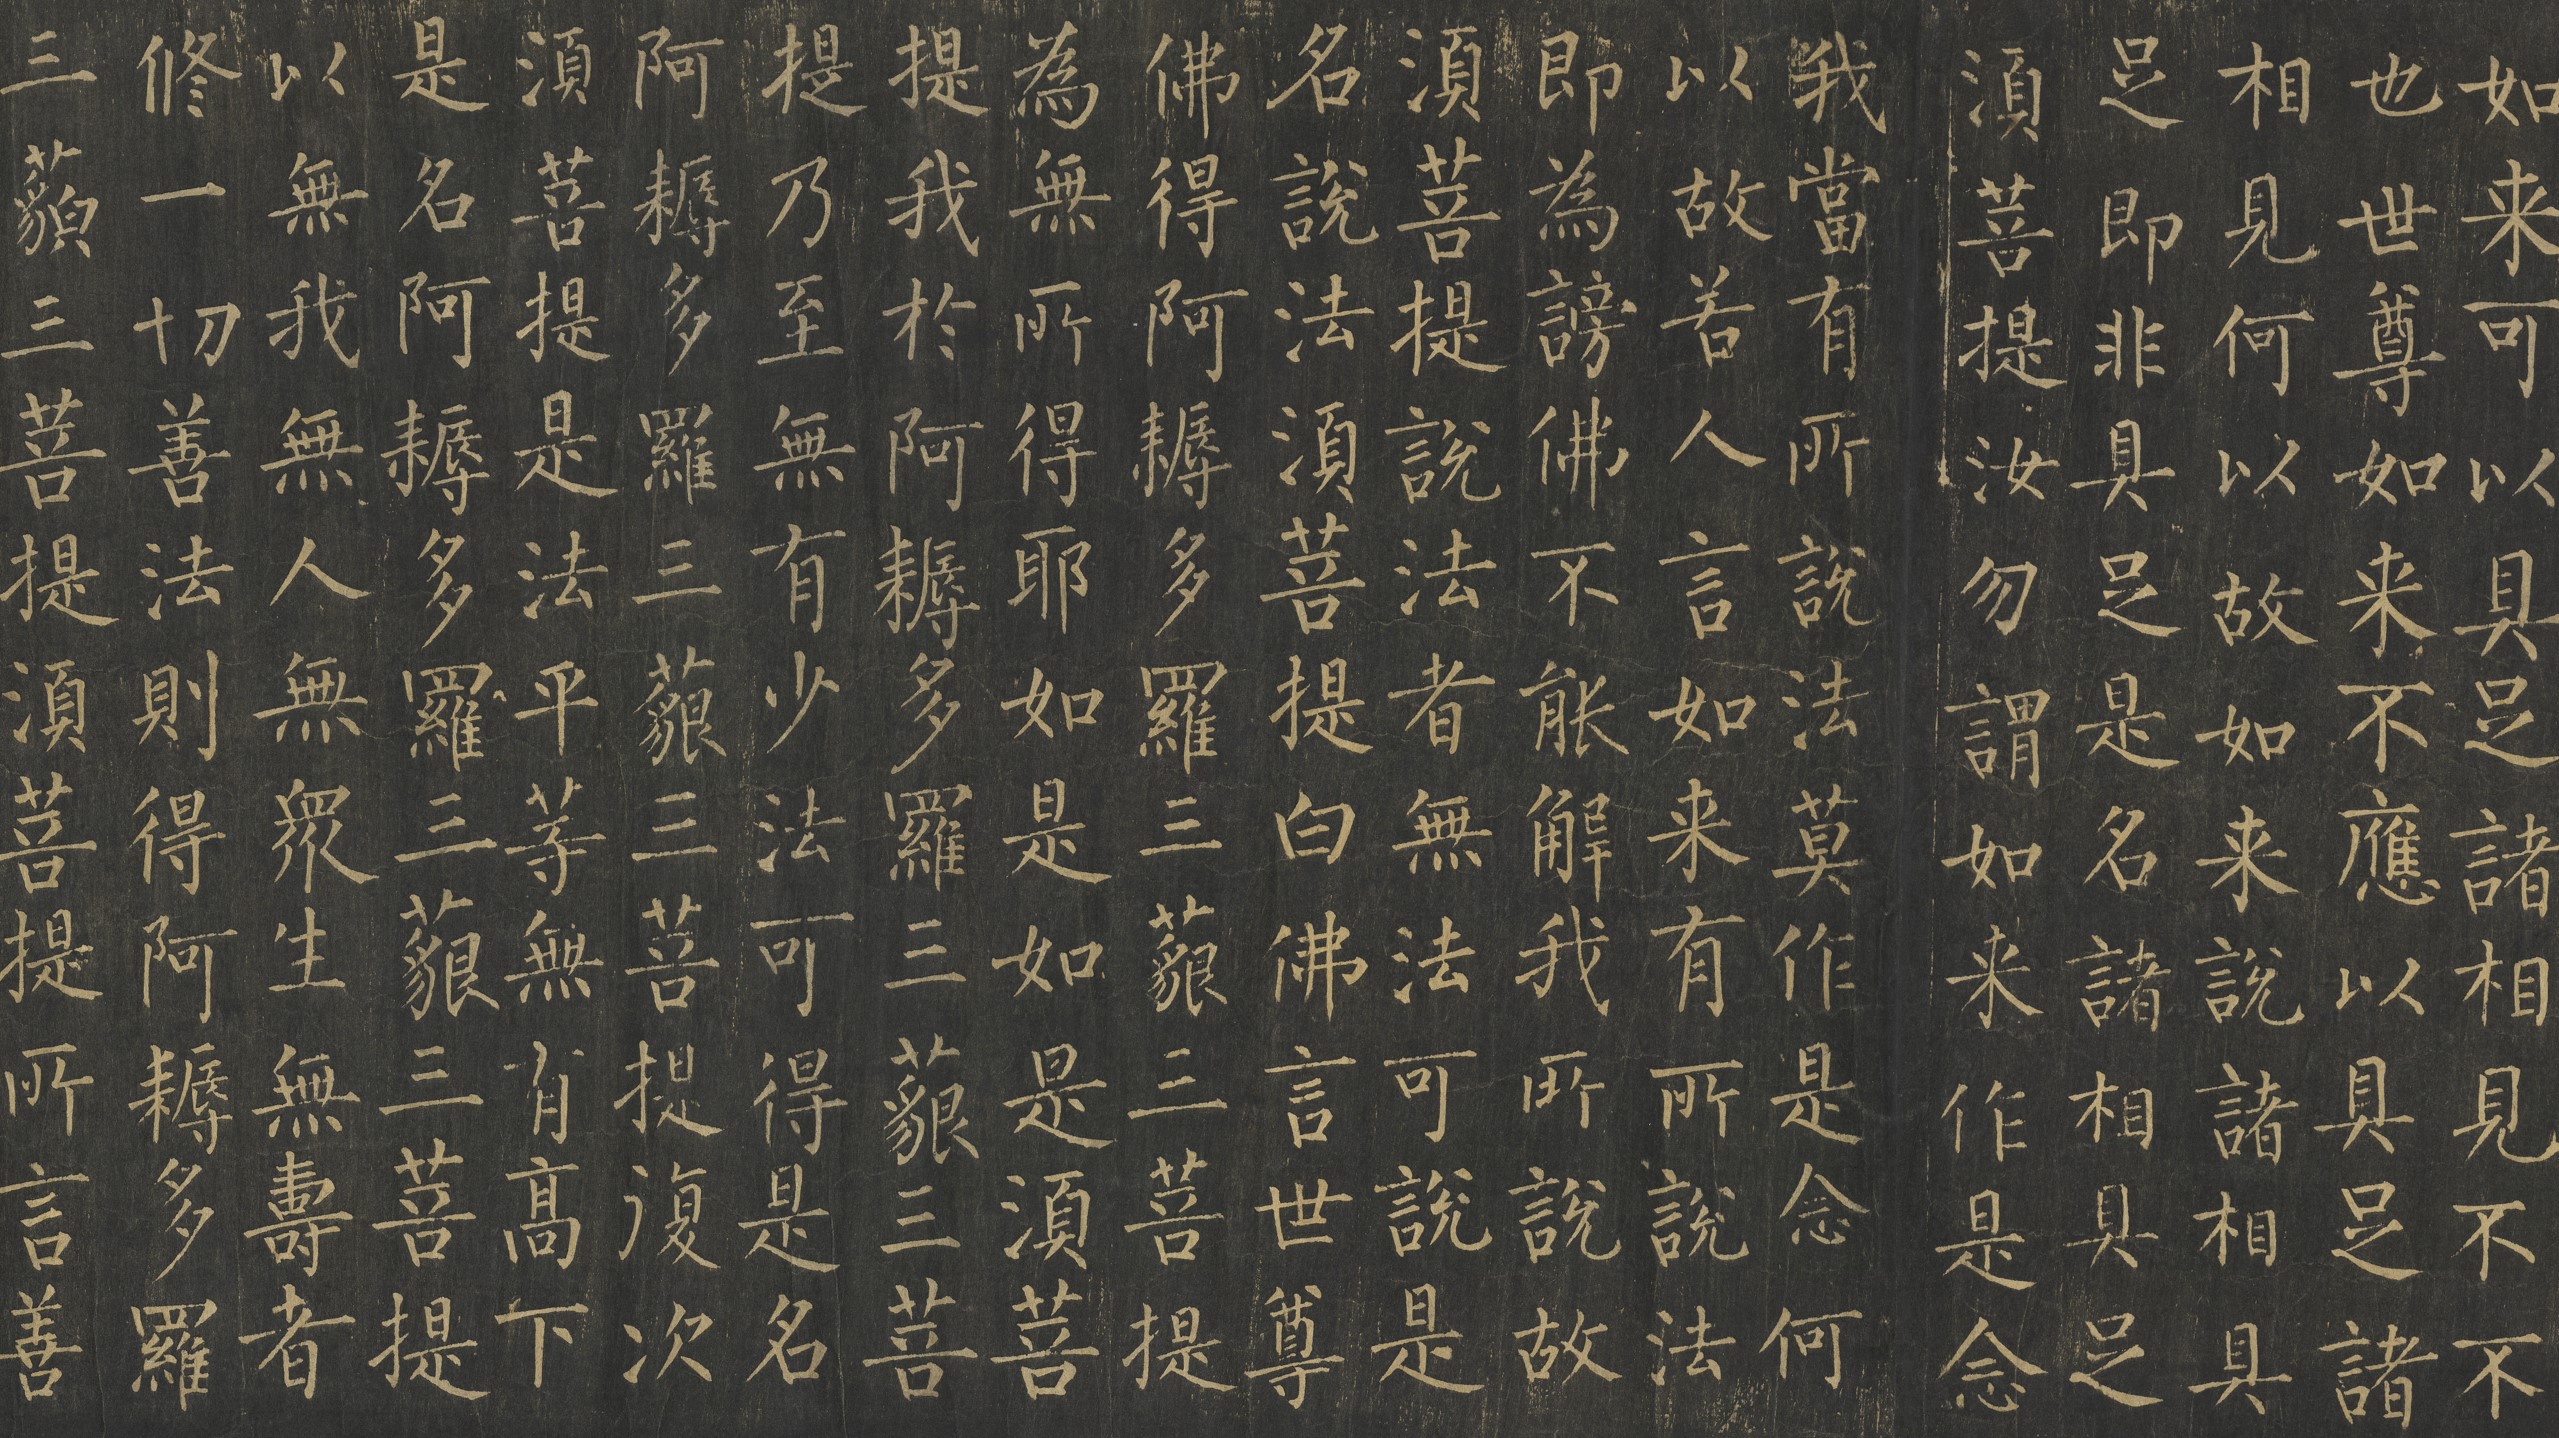 如来可以具足諸相見不不
也世尊如来不應以具足諸
相見何以故如来說諸相具
足即非具足是名諸相具足
須菩提汝勿謂如来作是念
我當有所說法莫作是念何
以故若人言如来有所說法
即為謗佛不能解我所說故
須菩提說法者無法可說是
名說法須菩提白佛言世尊
佛得阿耨多羅三藐三菩提
為無所得耶如是如是須菩
提我於阿耨多羅三藐三菩
提乃至無有少法可得是名
阿耨多羅三藐三菩提復次
須菩提是法平等無有高下
是名阿耨多羅三藐三菩提
以無我無人無衆生無壽者
修一切善法則得阿耨多羅
三藐三菩提須菩提所言善